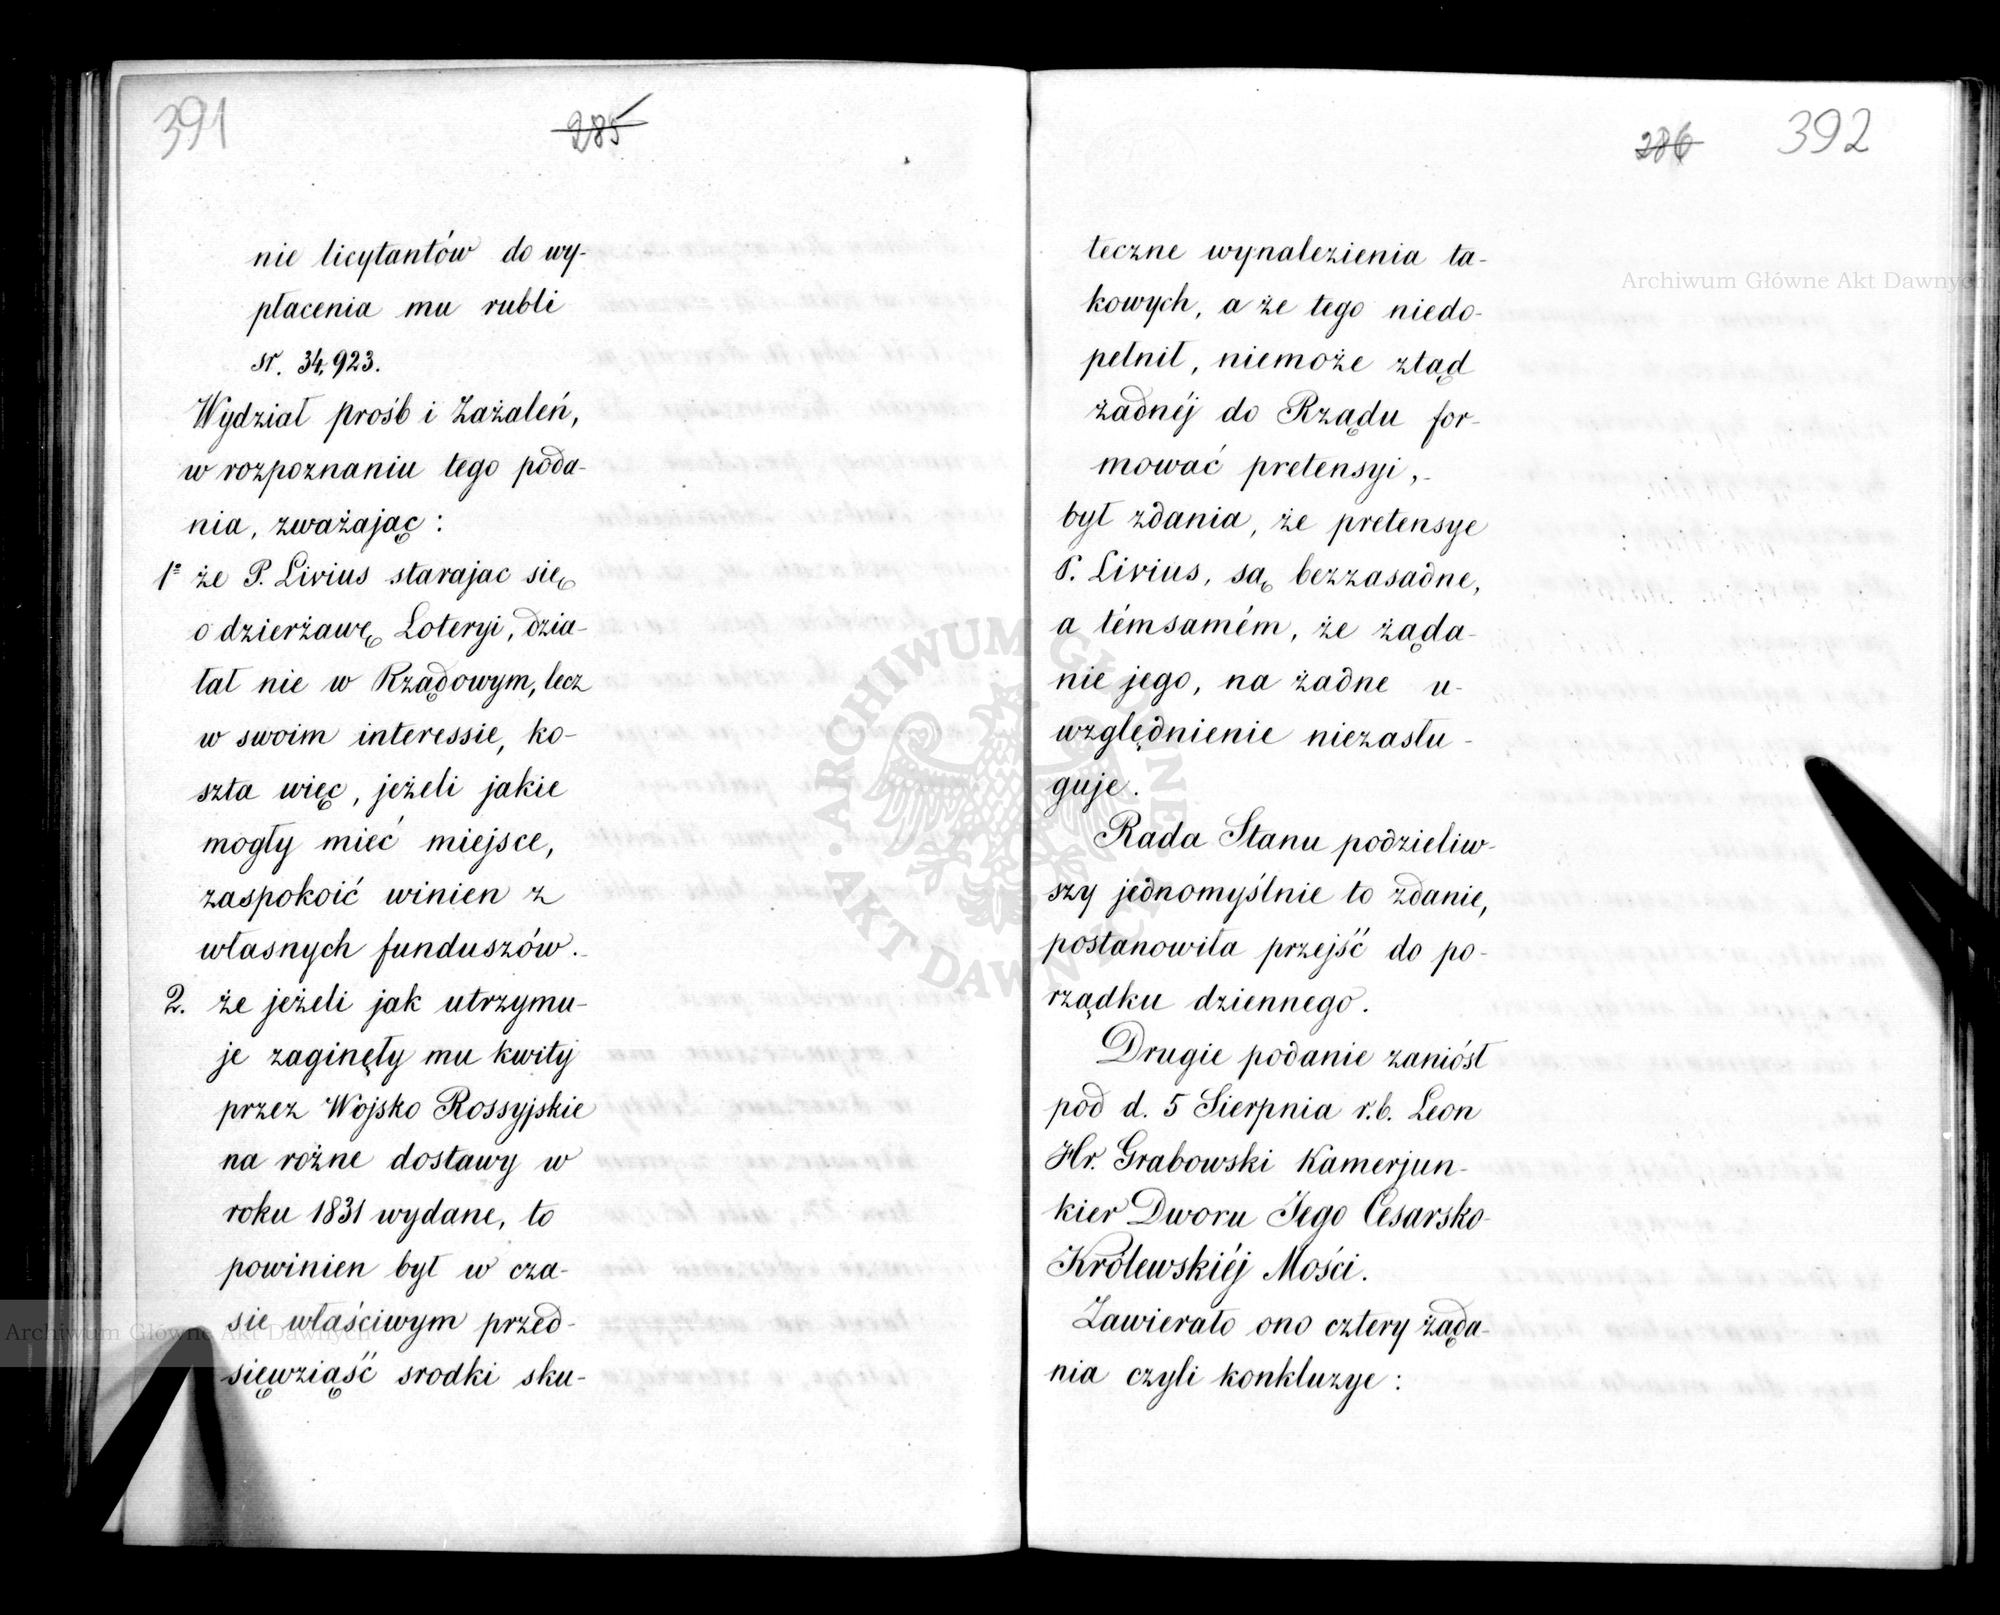 391
285
nie licytantów do wy-
płacenia mu rubli
sr. 34,923.
Wydział prośb i Zażaleń,
w rozpoznaniu tego poda-
nia, zważając:
1º że P. Livius starajac się
o dzierżawę Loteryi, dzia-
łał nie w Rządowym, lecz
w swoim interessie, ko-
szta więc, jeżeli jakie
mogły mieć miejsce,
zaspokoić winien z
własnych funduszów.
2. że jeżeli jak utrzymu-
je zaginęły mu kwity
przez Wojsko Rossyjskie
na rożne dostawy w
roku 1831 wydane, to
powinien był w cza-
sie właściwym przed-
sięwziąść srodki sku-
286
392
teczne wynalezienia ta-
kowych, a że tego niedo-
pełnił, niemoże ztąd
żadnéj do Rządu for-
mować pretensyi,-
był zdania, że pretensye
P. Livius, są bezzasadne,
a témsamém, że żąda-
nie jego, na żadne u-
względnienie niezasłu-
guje.
Rada Stanu podzieliw-
szy jednomyślnie to zdanie,
postanowiła przejść do po-
rządku dziennego.
Drugie podanie zaniósł
pod d. 5 Sierpnia r.b. Leon
Hr. Grabowski Kamerjun-
kier Dworu Jego Cesarsko-
Królewskiéj Mości.
Zawierało ono cztery żąda-
nia czyli konkluzye:
Archiwum Główne Akt Dawnych
Archiwum Główne Akt Dawnych
ARCHIWUM GŁÓWNE
AKT DAWNYCH